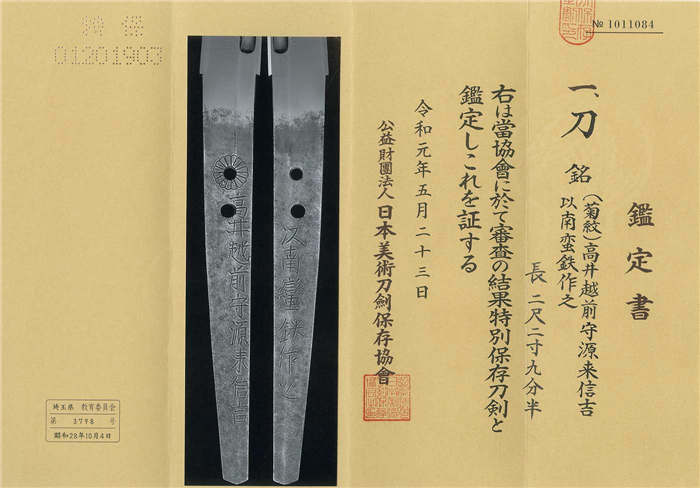 № 1011084
鑑定書
一、刀 銘 (菊紋)高井越前守源来信吉
以南蛮鉄作之
長 二尺二寸九分半
右は當協會に於て審査の結果特別保存刀剣と
鑑定しこれを証する
令和元年五月二十三日
公益財團法人 日本美術刀劍保存協會
以南蠻鉄作之
高井越前守源来信吉
特保
01201903
埼玉県 教育委員会
第 3798 号
昭和28年10月4日